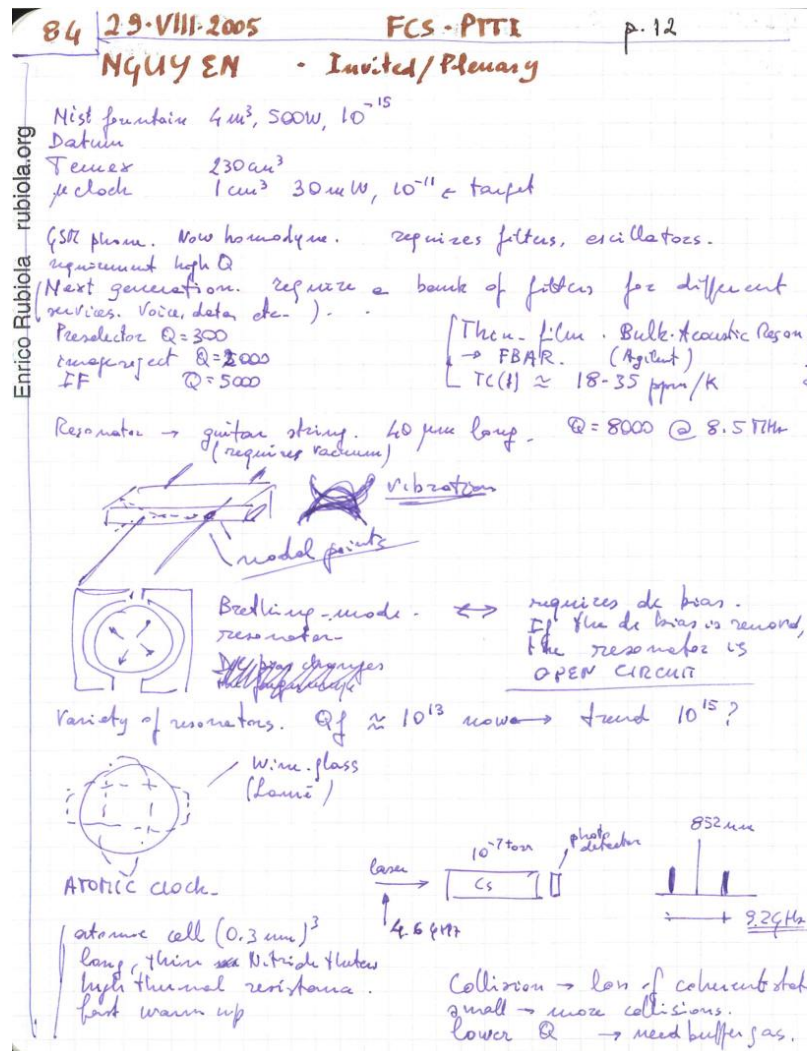 84 29·VIII·2005 FCS - PTTI p. 12
NGUYEN - Invited/Plenary
Nist fountain 4 m³, 500W, 10⁻¹⁵
Datum
Temex 230 cm³
μclock 1 cm³ 30 mW, 10⁻¹¹ ← target
GSM phone. Now homodyne. requires filters, oscillators.
requirement high Q
(Next generation. require a bank of filters for different
services. Voice, data, etc. ).
Preselector Q=300
image reject Q=2000
IF Q=5000
Thin-film. Bulk. Acoustic Reson
→ FBAR. (Agilent)
TC(f) ≈ 18-35 ppm/K
Resonator → guitar string. 40 μm long. Q=8000 @ 8.5 MHz
(requires vacuum)
vibration
nodal points
Brething-mode.
resonator-
↔ requires dc bias.
If the dc bias is removd,
the resonator is
OPEN CIRCUIT
Variety of resonators. Qf ≈ 10¹³ now → trend 10¹⁵?
Wine-glass
(Lamé)
ATOMIC CLOCK-
laser
4.6 GHz
10⁻⁷ torr
Cs
photo
detector
852 nm
9.2 GHz
atomic cell (0.3 mm)³
long, thin Nitride
high thermal resistance.
fast warm up
Collision → loss of coherent stat
small → more collisions.
lower Q → need buffer gas.
Enrico Rubiola rubiola.org